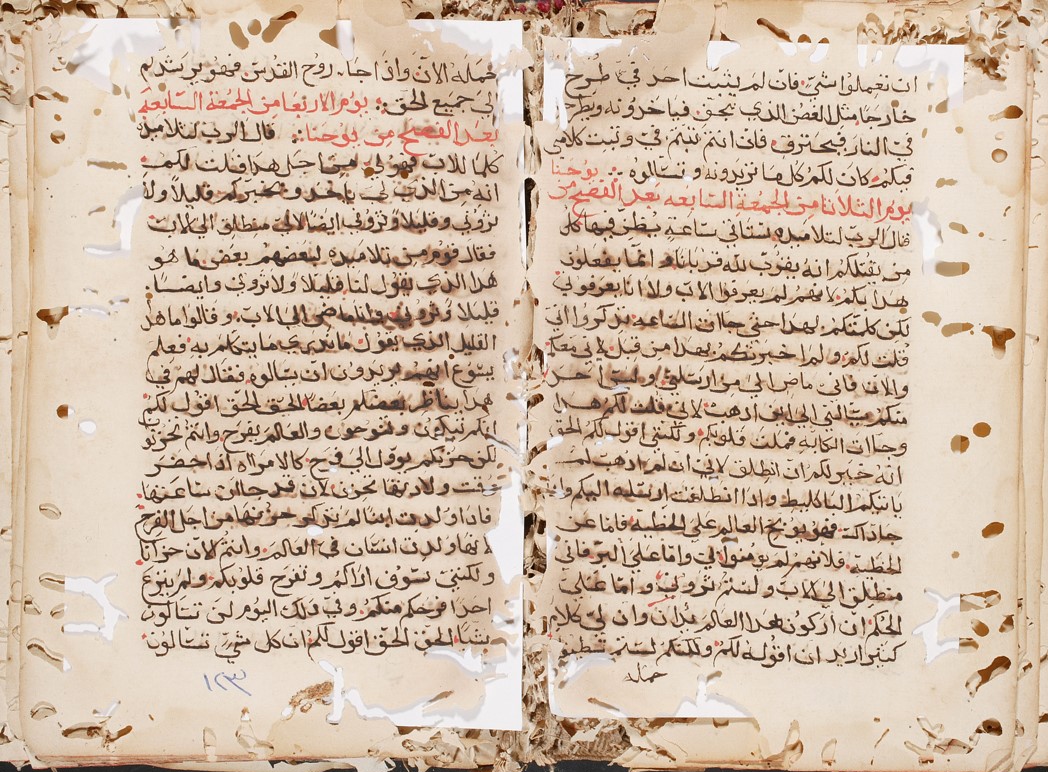 ان تعملوا شي فان لم يثبت احد في طرح
خارجا مثل الغصن الذي يجف فياخذونه ويطرح
في النار فيحترق فان انتم ثبتم في وثبت كلامي
فيكم كان لكم كل ما تريدونه وتسالوه يوحنا
يوم الثلاثا من الجمعة السابعه بعد الفصح من
قال الرب لتلاميذه ستاتي ساعه يظن فيها كل
من يقتلكم انه يقرب لله قربانا و انما يفعلون
هذا بكم لانهم لم يعرفوا الاب ولا انا يعرفوني
لكن كلمتكم بهذا حتى جاات الساعه تذكروا اني
قلت لكم ولم اخبرتكم بهذا من قبل لاني معكم
والان فاني ماض الى من ارسلني وليس احد
منكم يسالني الى اين اذهب لاني قلت لكم هذا
وجاات الكابه فملت قلوبكم ولكنني اقول لكم الحق
انه خير لكم ان انطلق لاني ان لم اذهب لم
ياتيكم البارقليط واذا انطلقت ارسلته اليكم واذا
جا ذاك فهو يوبخ العالم على الخطية فاما عن
الخطية فلانهم لم يومنوا بي واما على البر فاني
منطلق الى الاب ولستم تروني واما على
الحكم ان اركون هذا العالم يدان وان لي كلام
كثير اريد ان اقوله لكم ولكنكم لستم تطيقو
حمله
حمله الان واذا جا روح القدس فهو يرشدكم
الى جميع الحق يوم الاربعا من الجمعة السابعه
بعد الفصح من يوحنا قال الرب لتلاميذه
كلما للاب فهو لي من اجل هذا قلت لكم
انه من الذي لي ياخذ ويخبركم قليلا ولا
تروني وقليلا وتروني ايضا لاني منطلق الى الاب
فقال قوم من تلاميذه لبعضهم بعض ما هو
هذا الذي يقول لنا قليلا ولا تروني وايضا
قليلا وتروني وانا ماضي الى الاب وقالوا ما هذا
القليل الذي يقول ما ندري ما يتكلم به فعلم
يسوع انهم يريدون ان يسالوه فقال لهم في
هذا يناظر بعضكم بعضا الحق الحق اقول لكم
انكم تبكون وتنوحون والعالم يفرح وانتم تحزنو
لكن حزنكم يوول الى فرح كالامراه اذا حضر
وقت ولادتها تحزن لان قد جاات ساعتها
فاذا ولدت ابنا لم تذكر حزنها من اجل الفرح
لانها ولدت انسان في العالم وانتم الان حزانا
ولكنني سوف اراكم وتفرح قلوبكم ولم ينزع
احدا فرحكم منكم وفي ذلك اليوم لن تسالون
شيا الحق الحق اقول لكم ان كل شي تسالون
١٢٣